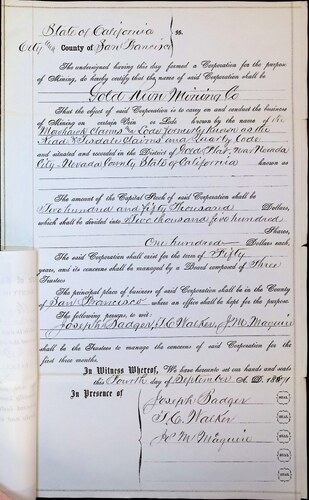 State of California } ss.
City and County of San Francisco
The undersigned having this day formed a Corporation for the purpose
of Mining, do hereby certify that the name of said Corporation shall be
Gold Run Mining Co
That the object of said Corporation is to carry on and conduct the business
of Mining on certain Vein or Lode known by the name of the
Mowhawk Claims & Lode formerly known as the
Tisdale Claims and Quartz Lode
and situated and recorded in the District of Gold Flat, near Nevada
City Nevada County State of California known as
The amount of the Capital Stock of said Corporation shall be
Five hundred and fifty Thousand Dollars,
which shall be divided into Five thousand five hundred
Shares,
One hundred Dollars each,
The said Corporation shall exist for the term of Fifty
years, and its concerns shall be managed by a Board composed of Three
Trustees
The principal place of business of said Corporation shall be in the County
of San Francisco where an office shall be kept for the purpose.
The following persons, to wit:
Joseph Badger, T. C. Walker, J. M. Maguire
shall be the Trustees to manage the concerns of said Corporation for the
first three months.
In Witness Whereof, We have hereunto set our hands and seals
this Fourth day of September A. D. 18
In Presence of
Joseph Badger SEAL
T. C. Walker SEAL
J. M. Maguire SEAL
SEAL
SEAL